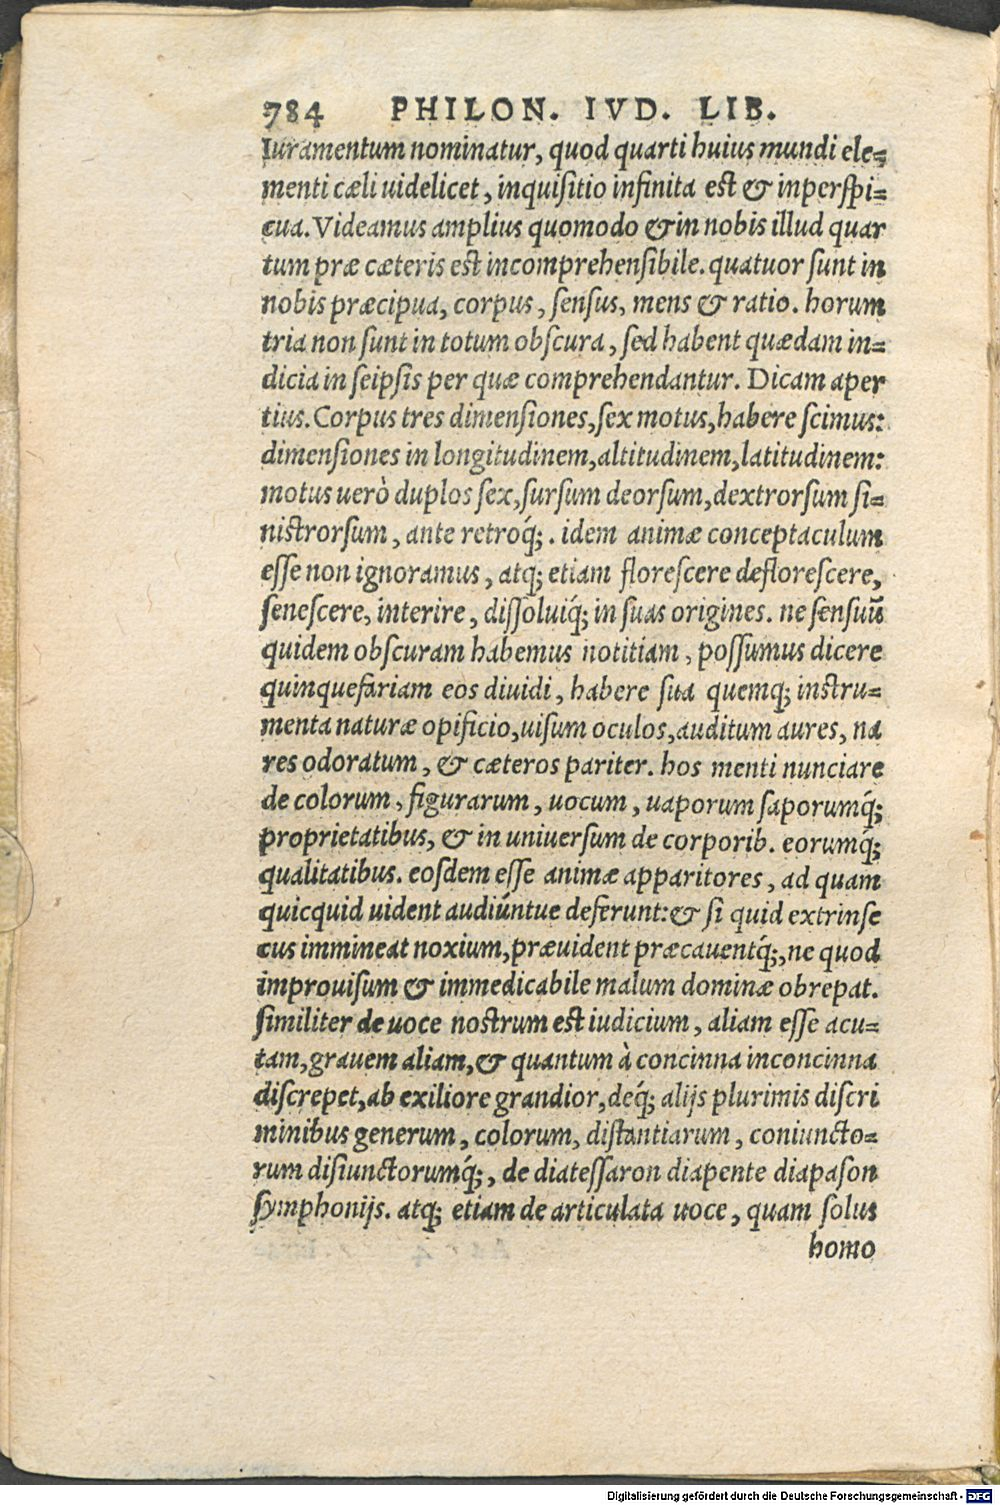 784 PHILON. IVD. LIB.
Iuramentum nominatur, quod quarti huius mundi ele=
menti cæli uidelicet, inquisitio infinita est & inperspi=
cua. Videamus amplius quomodo & in nobis illud quar
tum præ cæteris est incomprehensibile. quatuor sunt in
nobis præcipua, corpus, sensus, mens & ratio. horum
tria non sunt in totum obscura, sed habent quædam in=
dicia in seipsis per quæ comprehendantur. Dicam aper
tius. Corpus tres dimensiones, sex motus, habere scimus:
dimensiones in longitudinem, altitudinem, latitudinem:
motus uerò duplos sex, sursum deorsum, dextrorsum si=
nistrorsum, ante retroq́;. idem animæ conceptaculum
esse non ignoramus, atq; etiam florescere deflorescere,
senescere, interire, dissoluiq́; in suas origines. ne sensuū
quidem obscuram habemus notitiam, possumus dicere
quinquefariam eos diuidi, habere sua quemq; instru=
menta naturæ opificio, uisum oculos, auditum aures, na
res odoratum, & cæteros pariter. hos menti nunciare
de colorum, figurarum, uocum, uaporum saporumq́;
proprietatibus, & in uniuersum de corporib. eorumq́;
qualitatibus. eosdem esse animæ apparitores, ad quam
quicquid uident audiúntue deferunt: & si quid extrinse
cus immineat noxium, præuident præcauentq́;, ne quod
improuisum & immedicabile malum dominæ obrepat.
similiter de uoce nostrum est iudicium, aliam esse acu=
tam, grauem aliam, & quantum à concinna inconcinna
discrepet, ab exiliore grandior, deq́; alijs plurimis discri
minibus generum, colorum, distantiarum, coniuncto=
rum disiunctorumq́;, de diatessaron diapente diapason
symphonijs. atq; etiam de articulata uoce, quam solus
homo
Digitalisierung gefördert durch die Deutsche Forschungsgemeinschaft - DFG